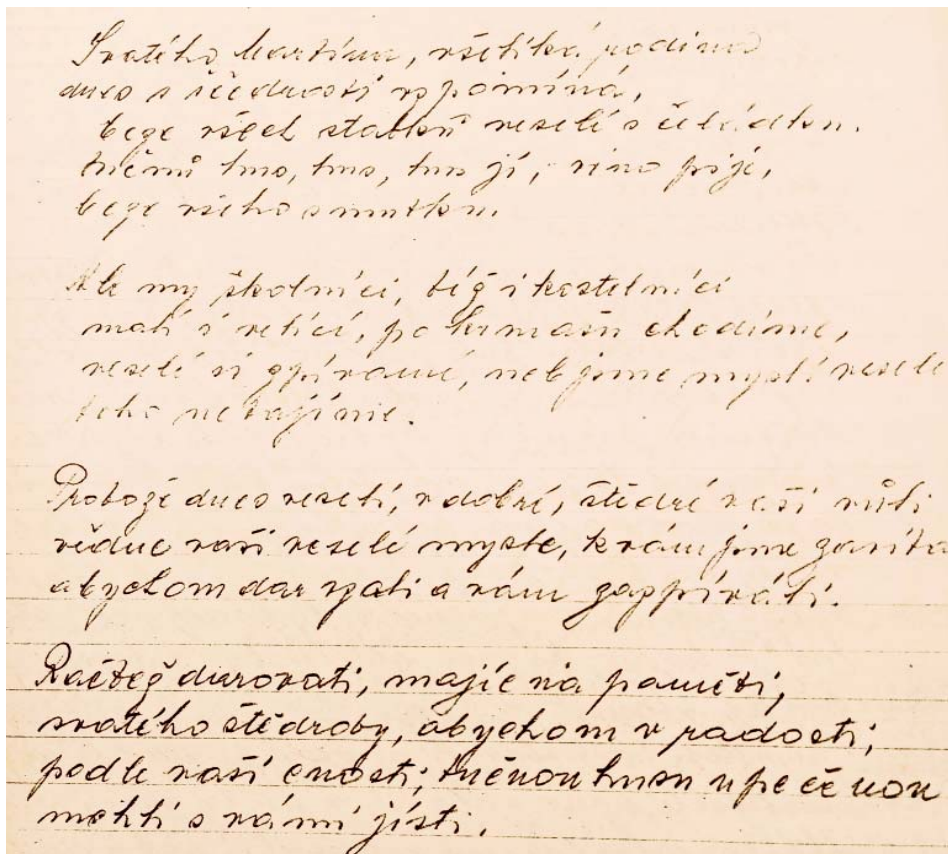 Svatého Martina, všeliká rodina
dnes s ščedrostí vzpomíná,
beze všech statků veselí s čeládkou.
tučnú hus, hus, hus jí, víno píjé,
beze všeho smutku.
Ale my školníci, též i kostelníci
malí i velící, po kermaši chodíme,
veselé si zpíváme, neb jsme myslí veselé
toho netajíme.
Protože dnes veselí, v dobré, štědré vaší vůli
vědúc vaši veselé mysle, k vám jsme zavíta
abychom dar vzali a vám zazpívali.
Račtež darovati, majíc na paměti,
svatého štědroby, abychom v radosti;
podle vaší cnosti; tučnou husu upečenou
mohli s vámi jísti.